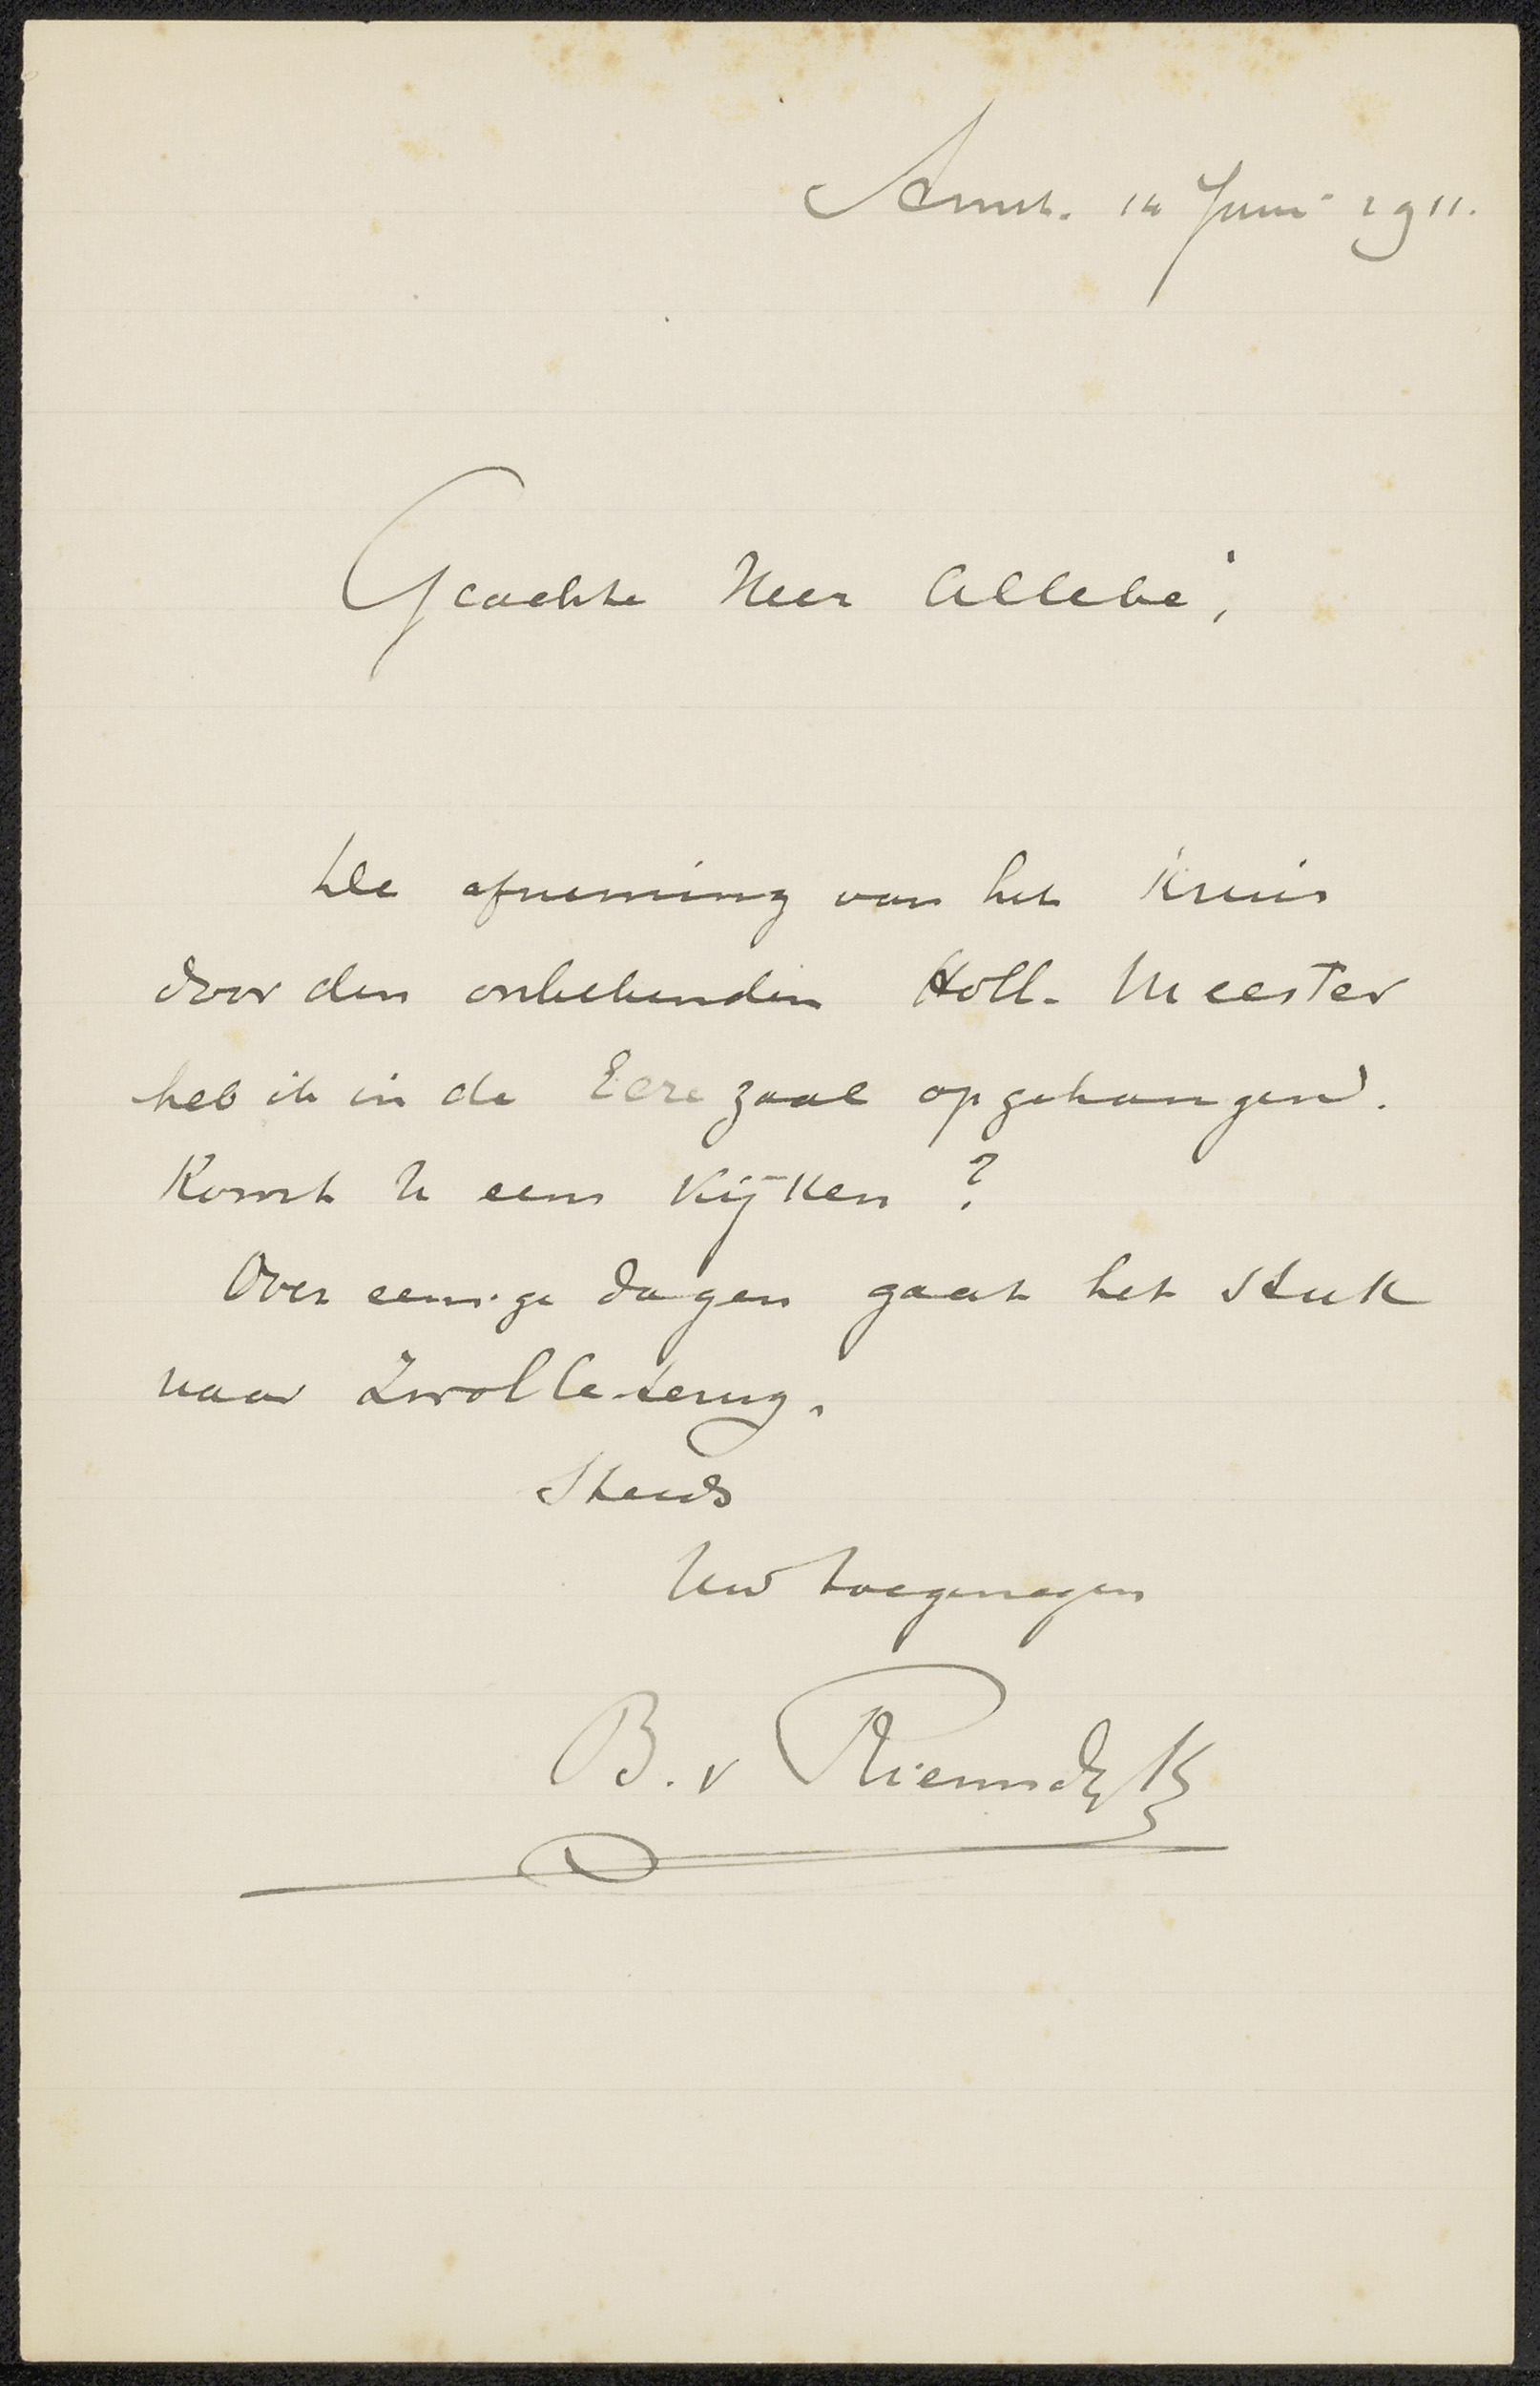 Amst. 14 Juni 1911.
Geachte Heer Allebé,
De afneming van het Kruis
door den onbekenden Holl. Meester
heb ik in de Eere zaal opgehangen.
Komt U eens kijken ?
Over eenige dagen gaat het stuk
naar Zwolle terug.
Steeds
Uw toegenegen
B. v Riemsdijk